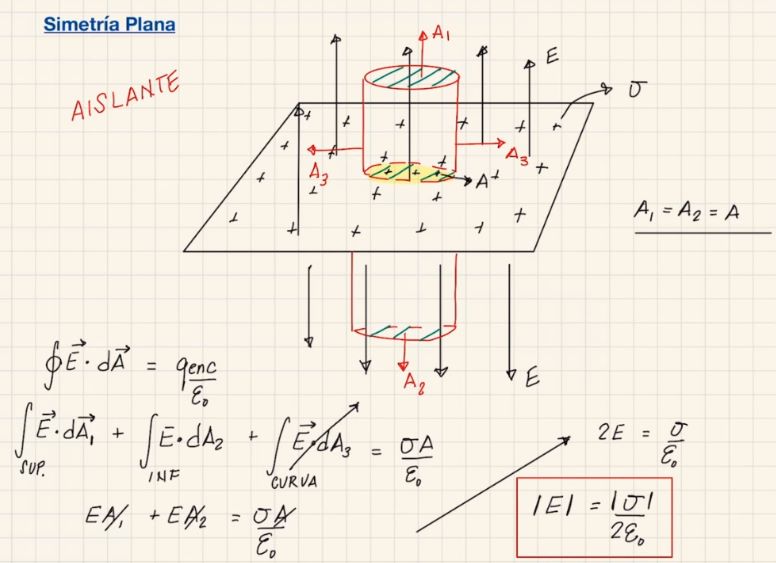 Simetría Plana
AISLANTE
A₁
E
σ
A₃
A₃
A
A₁ = A₂ = A
A₂
E
∮E⃗ · dA⃗ = qenc/ε₀
∫SUP. E⃗ · dA⃗₁ + ∫INF E · dA₂ + ∫CURVA E⃗ · dA₃ = σA/ε₀
EA₁ + EA₂ = σA/ε₀
2E = σ/ε₀
|E| = |σ|/2ε₀